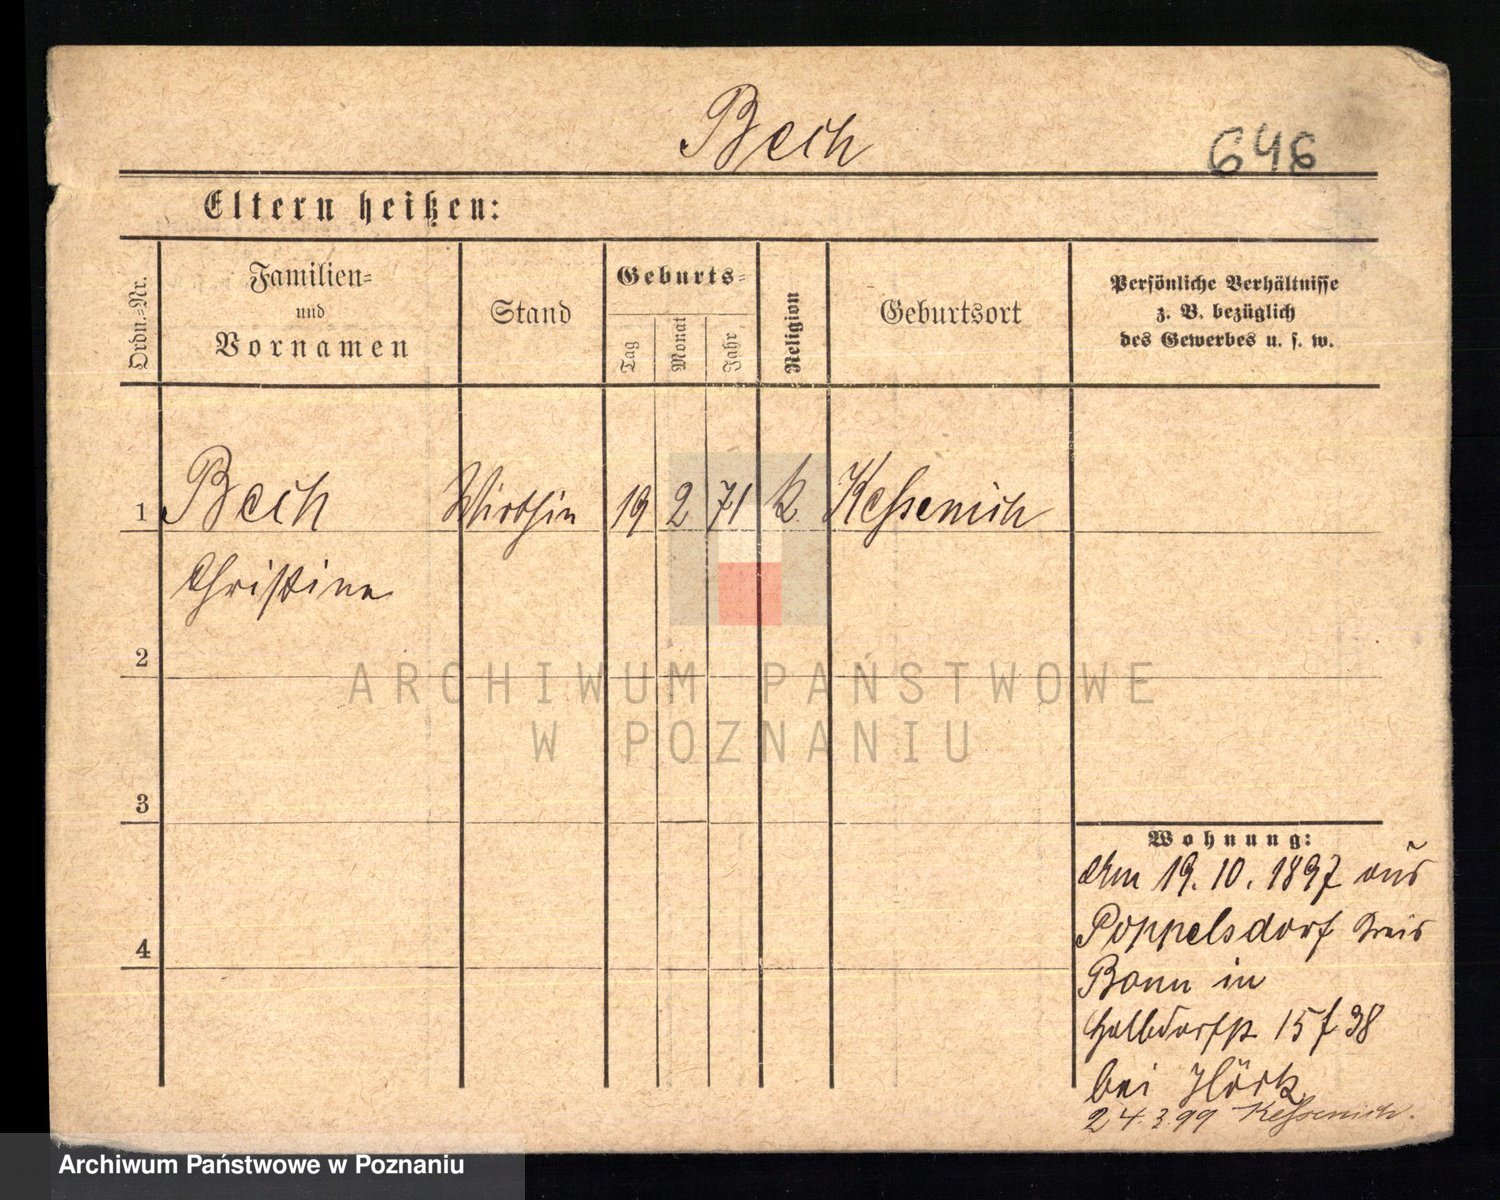 Bech
646
Eltern heißen:
Ordn.-Nr.
Familien-
und
Vornamen
Stand
Geburts-
Tag
Monat
Jahr
Religion
Geburtsort
Persönliche Verhältnisse
z. B. bezüglich
des Gewerbes u. s. w.
1 Bech Wirthin 19 2 71 k. Kessenich
Christine
2
3
4
Wohnung:
Am 19.10.1897 aus
Poppelsdorf Kreis
Bonn in
Halbdorfst 15 38
bei
24.3.99 Kessenich.
ARCHIWUM PAŃSTWOWE
W POZNANIU
Archiwum Państwowe w Poznaniu